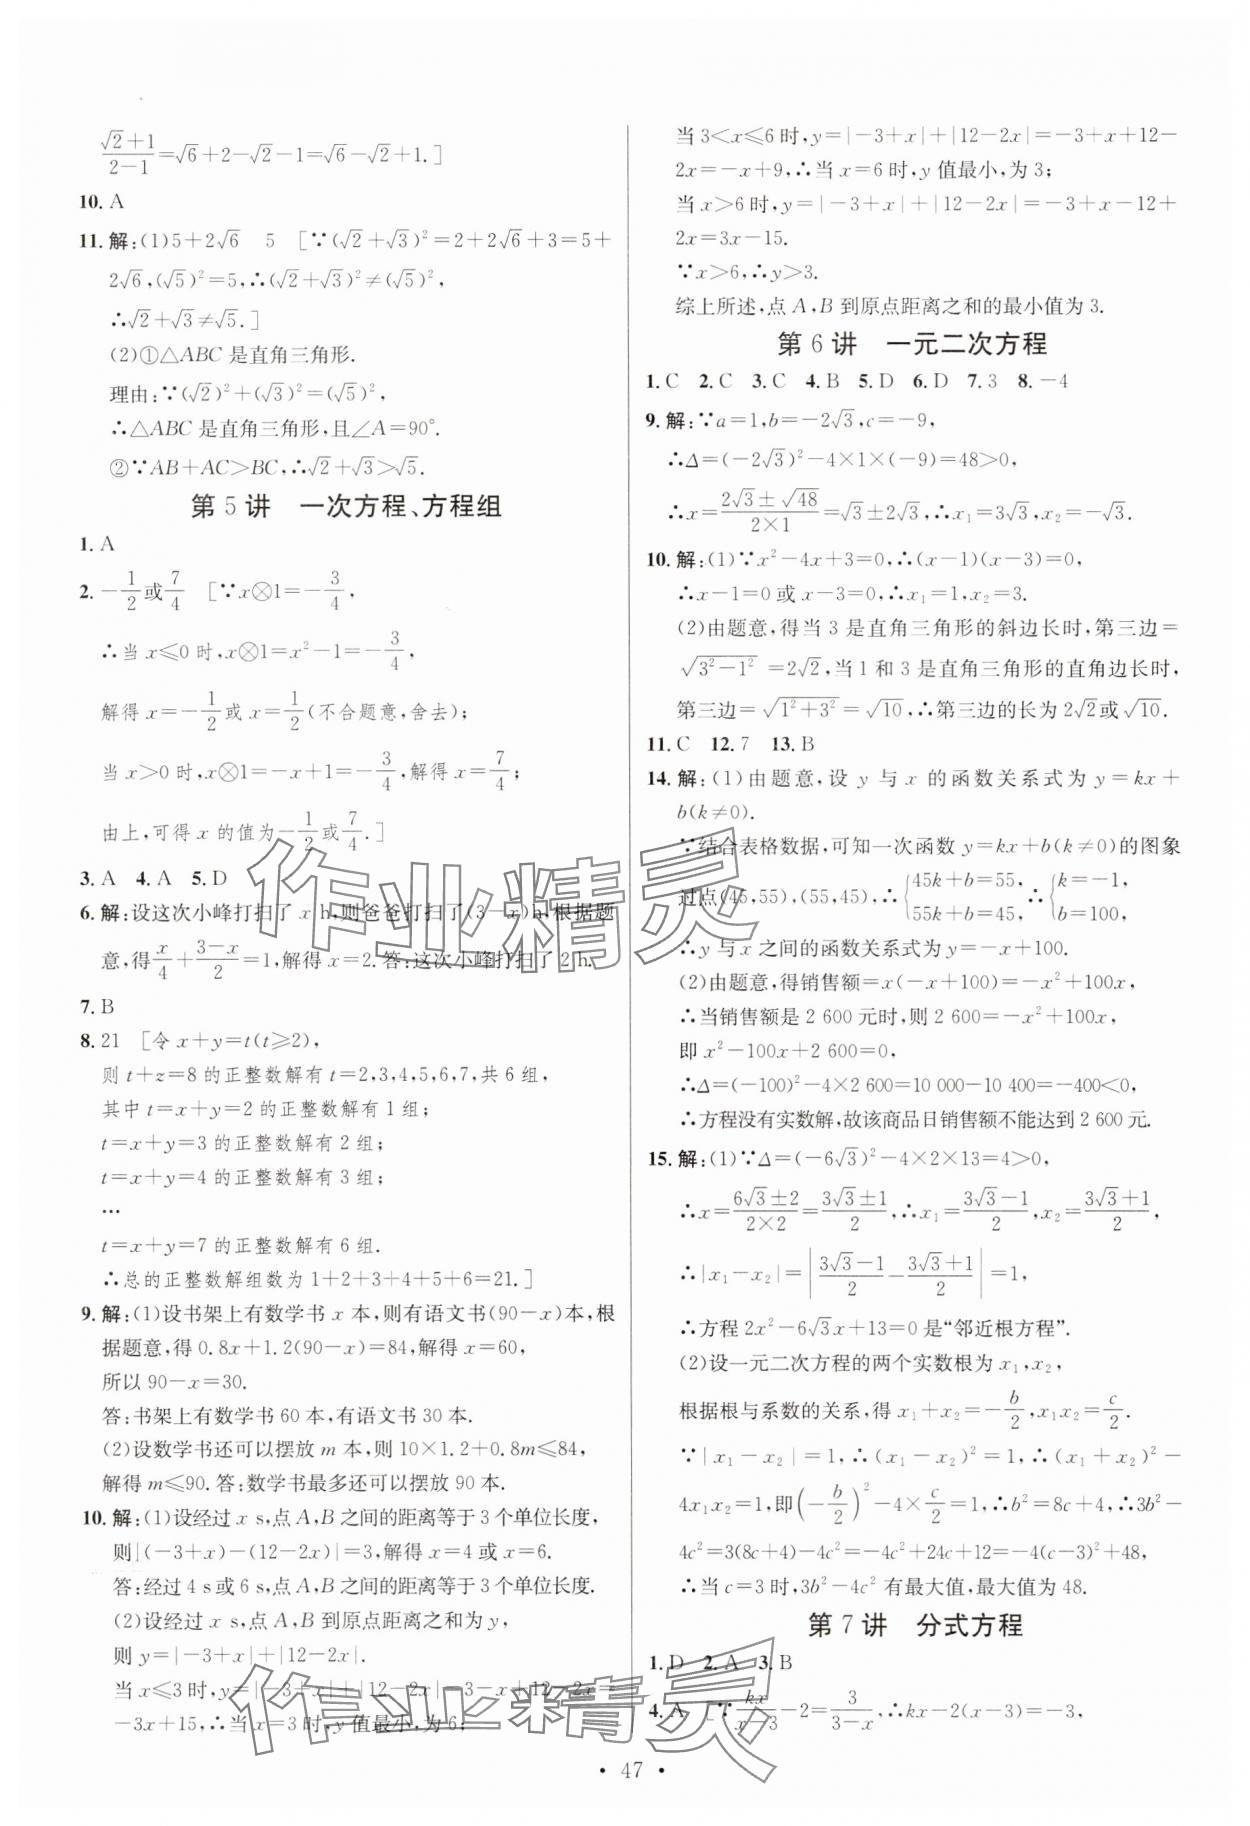 (√2+1)/(2−1)=√6+2−√2−1=√6−√2+1.]
10. A
11. 解:(1)5+2√6　5　[∵(√2+√3)²=2+2√6+3=5+
2√6,(√5)²=5,∴(√2+√3)²≠(√5)²,
∴√2+√3≠√5.]
(2)①△ABC 是直角三角形.
理由:∵(√2)²+(√3)²=(√5)²,
∴△ABC 是直角三角形,且∠A=90°.
②∵AB+AC>BC,∴√2+√3>√5.
第 5 讲　一次方程、方程组
1. A
2. −1/2或7/4　[∵x⊗1=−3/4,
∴当 x≤0 时,x⊗1=x²−1=−3/4,
解得 x=−1/2或 x=1/2(不合题意,舍去);
当 x>0 时,x⊗1=−x+1=−3/4,解得 x=7/4;
由上,可得 x 的值为−1/2或7/4.]
3. A　4. A　5. D
6. 解:设这次小峰打扫了 x h,则爸爸打扫了(3−x)h,根据题
意,得x/4+(3−x)/2=1,解得 x=2.答:这次小峰打扫了 2 h.
7. B
8. 21　[令 x+y=t(t≥2),
则 t+z=8 的正整数解有 t=2,3,4,5,6,7,共 6 组,
其中 t=x+y=2 的正整数解有 1 组;
t=x+y=3 的正整数解有 2 组;
t=x+y=4 的正整数解有 3 组;
…
t=x+y=7 的正整数解有 6 组.
∴总的正整数解组数为 1+2+3+4+5+6=21.]
9. 解:(1)设书架上有数学书 x 本,则有语文书(90−x)本,根
据题意,得 0.8x+1.2(90−x)=84,解得 x=60,
所以 90−x=30.
答:书架上有数学书 60 本,有语文书 30 本.
(2)设数学书还可以摆放 m 本,则 10×1.2+0.8m≤84,
解得 m≤90.答:数学书最多还可以摆放 90 本.
10. 解:(1)设经过 x s,点 A,B 之间的距离等于 3 个单位长度,
则|(−3+x)−(12−2x)|=3,解得 x=4 或 x=6.
答:经过 4 s 或 6 s,点 A,B 之间的距离等于 3 个单位长度.
(2)设经过 x s,点 A,B 到原点距离之和为 y,
则 y=|−3+x|+|12−2x|.
当 x≤3 时,y=|−3+x|+|12−2x|=3−x+12−2x=
−3x+15,∴当 x=3 时,y 值最小,为 6;
当 3<x≤6 时,y=|−3+x|+|12−2x|=−3+x+12−
2x=−x+9,∴当 x=6 时,y 值最小,为 3;
当 x>6 时,y=|−3+x|+|12−2x|=−3+x−12+
2x=3x−15.
∵x>6,∴y>3.
综上所述,点 A,B 到原点距离之和的最小值为 3.
第 6 讲　一元二次方程
1. C　2. C　3. C　4. B　5. D　6. D　7. 3　8. −4
9. 解:∵a=1,b=−2√3,c=−9,
∴Δ=(−2√3)²−4×1×(−9)=48>0,
∴x=(2√3±√48)/(2×1)=√3±2√3,∴x₁=3√3,x₂=−√3.
10. 解:(1)∵x²−4x+3=0,∴(x−1)(x−3)=0,
∴x−1=0 或 x−3=0,∴x₁=1,x₂=3.
(2)由题意,得当 3 是直角三角形的斜边长时,第三边=
√(3²−1²)=2√2,当 1 和 3 是直角三角形的直角边长时,
第三边=√(1²+3²)=√10,∴第三边的长为 2√2或√10.
11. C　12. 7　13. B
14. 解:(1)由题意,设 y 与 x 的函数关系式为 y=kx+
b(k≠0).
∵结合表格数据,可知一次函数 y=kx+b(k≠0)的图象
过点(45,55),(55,45),∴{45k+b=55, 55k+b=45, ∴{k=−1, b=100,
∴y 与 x 之间的函数关系式为 y=−x+100.
(2)由题意,得销售额=x(−x+100)=−x²+100x,
∴当销售额是 2 600 元时,则 2 600=−x²+100x,
即 x²−100x+2 600=0,
∴Δ=(−100)²−4×2 600=10 000−10 400=−400<0,
∴方程没有实数解,故该商品日销售额不能达到 2 600 元.
15. 解:(1)∵Δ=(−6√3)²−4×2×13=4>0,
∴x=(6√3±2)/(2×2)=(3√3±1)/2,∴x₁=(3√3−1)/2,x₂=(3√3+1)/2,
∴|x₁−x₂|=|(3√3−1)/2−(3√3+1)/2|=1,
∴方程 2x²−6√3x+13=0 是“邻近根方程”.
(2)设一元二次方程的两个实数根为 x₁,x₂,
根据根与系数的关系,得 x₁+x₂=−b/2,x₁x₂=c/2.
∵|x₁−x₂|=1,∴(x₁−x₂)²=1,∴(x₁+x₂)²−
4x₁x₂=1,即(−b/2)²−4×c/2=1,∴b²=8c+4,∴3b²−
4c²=3(8c+4)−4c²=−4c²+24c+12=−4(c−3)²+48,
∴当 c=3 时,3b²−4c² 有最大值,最大值为 48.
第 7 讲　分式方程
1. D　2. A　3. B
4. A　[∵kx/(x−3)−2=3/(3−x),∴kx−2(x−3)=−3,
• 47 •
作业精灵
作业精灵